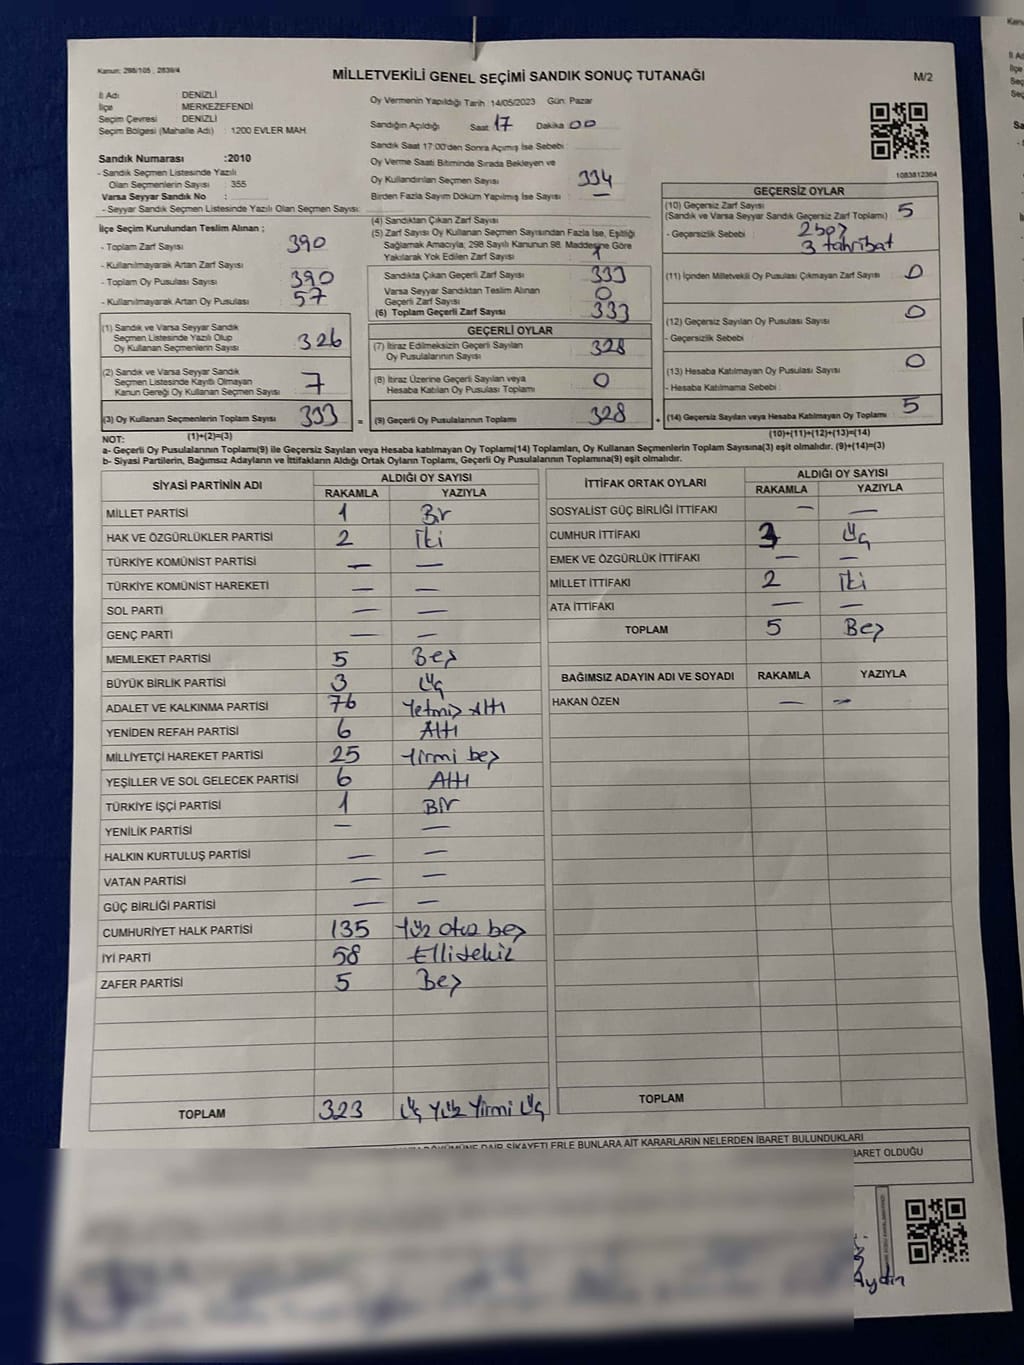 Kanun: 298/105, 2839/4
MİLLETVEKİLİ GENEL SEÇİMİ SANDIK SONUÇ TUTANAĞI
M/2
İl Adı : DENİZLİ
İlçe : MERKEZEFENDİ
Seçim Çevresi : DENİZLİ
Seçim Bölgesi (Mahalle Adı) : 1200 EVLER MAH
Oy Vermenin Yapıldığı Tarih :14/05/2023 Gün: Pazar
Sandığın Açıldığı Saat :17 Dakika :00
Sandık Saat 17:00'den Sonra Açmış İse Sebebi :
Oy Verme Saati Bitiminde Sırada Bekleyen ve
Oy Kullandırılan Seçmen Sayısı : 334
Birden Fazla Sayım Döküm Yapılmış İse Sayısı : —
Sandık Numarası :2010
- Sandık Seçmen Listesinde Yazılı
Olan Seçmenlerin Sayısı : 355
Varsa Seyyar Sandık No :
- Seyyar Sandık Seçmen Listesinde Yazılı Olan Seçmen Sayısı:
1083812364
İlçe Seçim Kurulundan Teslim Alınan ;
- Toplam Zarf Sayısı : 390
- Kullanılmayarak Artan Zarf Sayısı :
- Toplam Oy Pusulası Sayısı : 390
- Kullanılmayarak Artan Oy Pusulası : 57
(1) Sandık ve Varsa Seyyar Sandık
Seçmen Listesinde Yazılı Olup
Oy Kullanan Seçmenlerin Sayısı : 326
(2) Sandık ve Varsa Seyyar Sandık
Seçmen Listesinde Kayıtlı Olmayan
Kanun Gereği Oy Kullanan Seçmen Sayısı : 7
(3) Oy Kullanan Seçmenlerin Toplam Sayısı : 333 =
(1)+(2)=(3)
(4) Sandıktan Çıkan Zarf Sayısı :
(5) Zarf Sayısı Oy Kullanan Seçmen Sayısından Fazla İse, Eşitliği
Sağlamak Amacıyla; 298 Sayılı Kanunun 98. Maddesine Göre
Yakılarak Yok Edilen Zarf Sayısı : 1
Sandıkta Çıkan Geçerli Zarf Sayısı : 333
Varsa Seyyar Sandıktan Teslim Alınan
Geçerli Zarf Sayısı : 0
(6) Toplam Geçerli Zarf Sayısı : 333
GEÇERLİ OYLAR
(7) İtiraz Edilmeksizin Geçerli Sayılan
Oy Pusulalarının Sayısı : 328
(8) İtiraz Üzerine Geçerli Sayılan veya
Hesaba Katılan Oy Pusulası Toplamı : 0
(9) Geçerli Oy Pusulalarının Toplamı : 328 +
GEÇERSİZ OYLAR
(10) Geçersiz Zarf Sayısı
(Sandık ve Varsa Seyyar Sandık Geçersiz Zarf Toplamı) : 5
- Geçersizlik Sebebi : 2 boş
3 tahribat
(11) İçinden Milletvekili Oy Pusulası Çıkmayan Zarf Sayısı : 0
(12) Geçersiz Sayılan Oy Pusulası Sayısı : 0
- Geçersizlik Sebebi :
(13) Hesaba Katılmayan Oy Pusulası Sayısı : 0
- Hesaba Katılmama Sebebi :
(14) Geçersiz Sayılan veya Hesaba Katılmayan Oy Toplamı : 5
(10)+(11)+(12)+(13)=(14)
NOT:
a- Geçerli Oy Pusulalarının Toplamı(9) ile Geçersiz Sayılan veya Hesaba katılmayan Oy Toplamı(14) Toplamları, Oy Kullanan Seçmenlerin Toplam Sayısına(3) eşit olmalıdır. (9)+(14)=(3)
b- Siyasi Partilerin, Bağımsız Adayların ve İttifakların Aldığı Ortak Oyların Toplamı, Geçerli Oy Pusulalarının Toplamına(9) eşit olmalıdır.
SİYASİ PARTİNİN ADI ALDIĞI OY SAYISI
RAKAMLA YAZIYLA
MİLLET PARTİSİ 1 Bir
HAK VE ÖZGÜRLÜKLER PARTİSİ 2 İki
TÜRKİYE KOMÜNİST PARTİSİ — —
TÜRKİYE KOMÜNİST HAREKETİ — —
SOL PARTİ — —
GENÇ PARTİ — —
MEMLEKET PARTİSİ 5 Beş
BÜYÜK BİRLİK PARTİSİ 3 Üç
ADALET VE KALKINMA PARTİSİ 76 Yetmiş Altı
YENİDEN REFAH PARTİSİ 6 Altı
MİLLİYETÇİ HAREKET PARTİSİ 25 Yirmi beş
YEŞİLLER VE SOL GELECEK PARTİSİ 6 Altı
TÜRKİYE İŞÇİ PARTİSİ 1 Bir
YENİLİK PARTİSİ — —
HALKIN KURTULUŞ PARTİSİ — —
VATAN PARTİSİ — —
GÜÇ BİRLİĞİ PARTİSİ — —
CUMHURİYET HALK PARTİSİ 135 Yüz otuz beş
İYİ PARTİ 58 Ellisekiz
ZAFER PARTİSİ 5 Beş
TOPLAM 323 Üç Yüz Yirmi Üç
İTTİFAK ORTAK OYLARI ALDIĞI OY SAYISI
RAKAMLA YAZIYLA
SOSYALİST GÜÇ BİRLİĞİ İTTİFAKI — —
CUMHUR İTTİFAKI 3 Üç
EMEK VE ÖZGÜRLÜK İTTİFAKI — —
MİLLET İTTİFAKI 2 İki
ATA İTTİFAKI — —
TOPLAM 5 Beş
BAĞIMSIZ ADAYIN ADI VE SOYADI RAKAMLA YAZIYLA
HAKAN ÖZEN — —
TOPLAM
DÖKÜMÜNE DAİR ŞİKAYETLERLE BUNLARA AİT KARARLARIN NELERDEN İBARET BULUNDUKLARI
İBARET OLDUĞU
Aydın